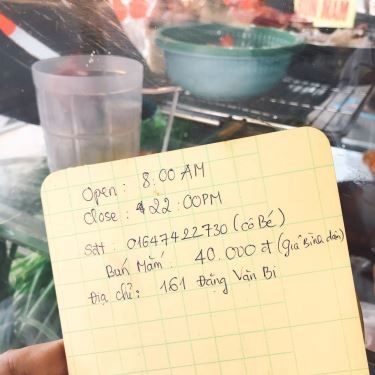 NAM
Open: 8.00 AM
Close: 22:00PM
Sđt: 01647422730 (cô Bé)
Bún Mắm: 40.000đ (giá Bình dân)
Địa chỉ: 161 Đặng Văn Bi